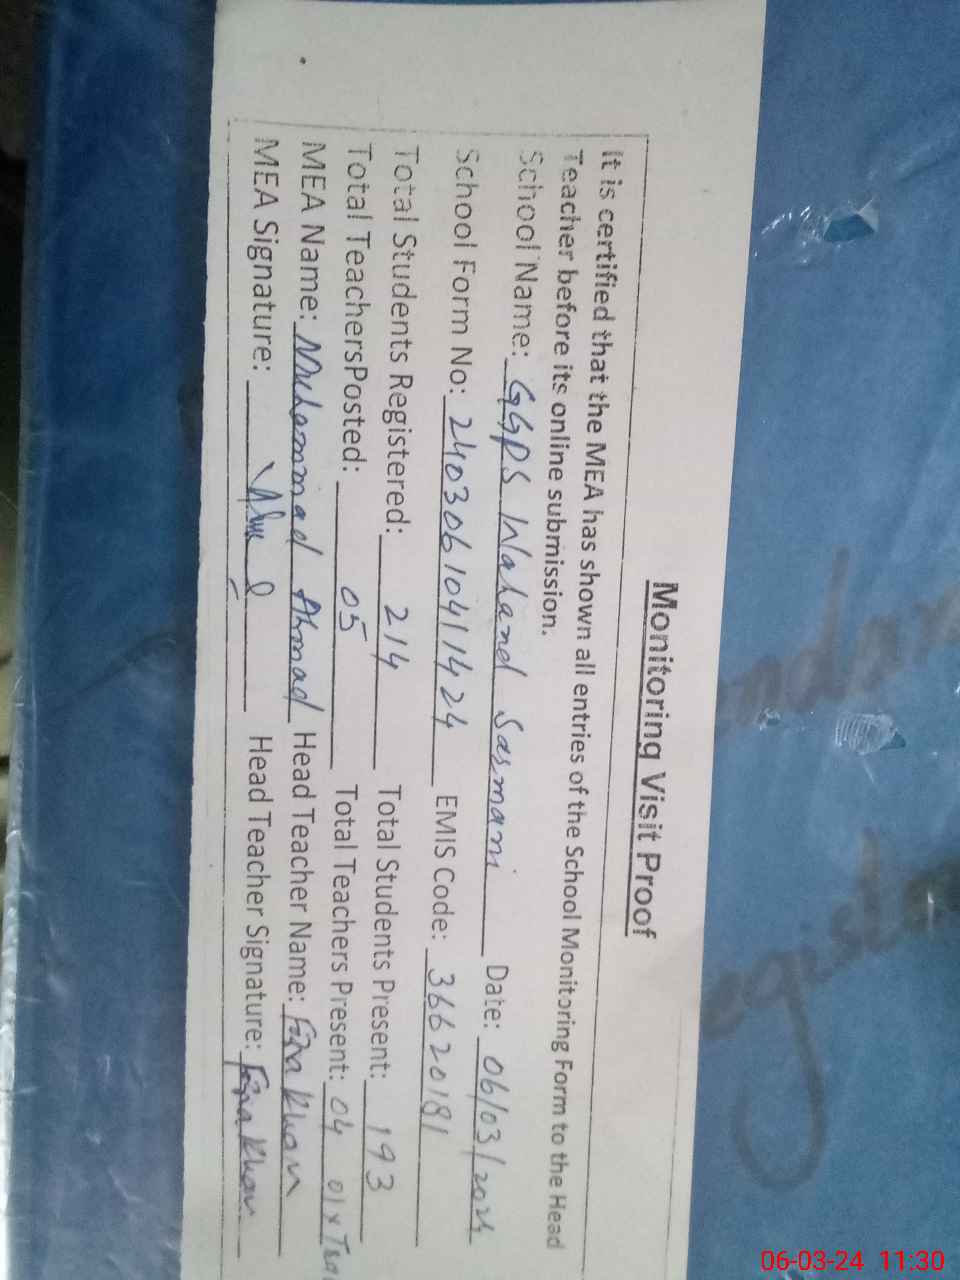 Monitoring Visit Proof
It is certified that the MEA has shown all entries of the School Monitoring Form to the Head
Teacher before its online submission.
School Name: GGPS Wahand Sarmani Date: 06/03/2024
School Form No: 24030610411424 EMIS Code: 36620181
Total Students Registered: 214 Total Students Present: 193
Total TeachersPosted: 05 Total Teachers Present: 04 01 x
MEA Name: Muhammad Ahmad Head Teacher Name: Fiza Khan
MEA Signature: Head Teacher Signature: Fiza Khan
06-03-24 11:30